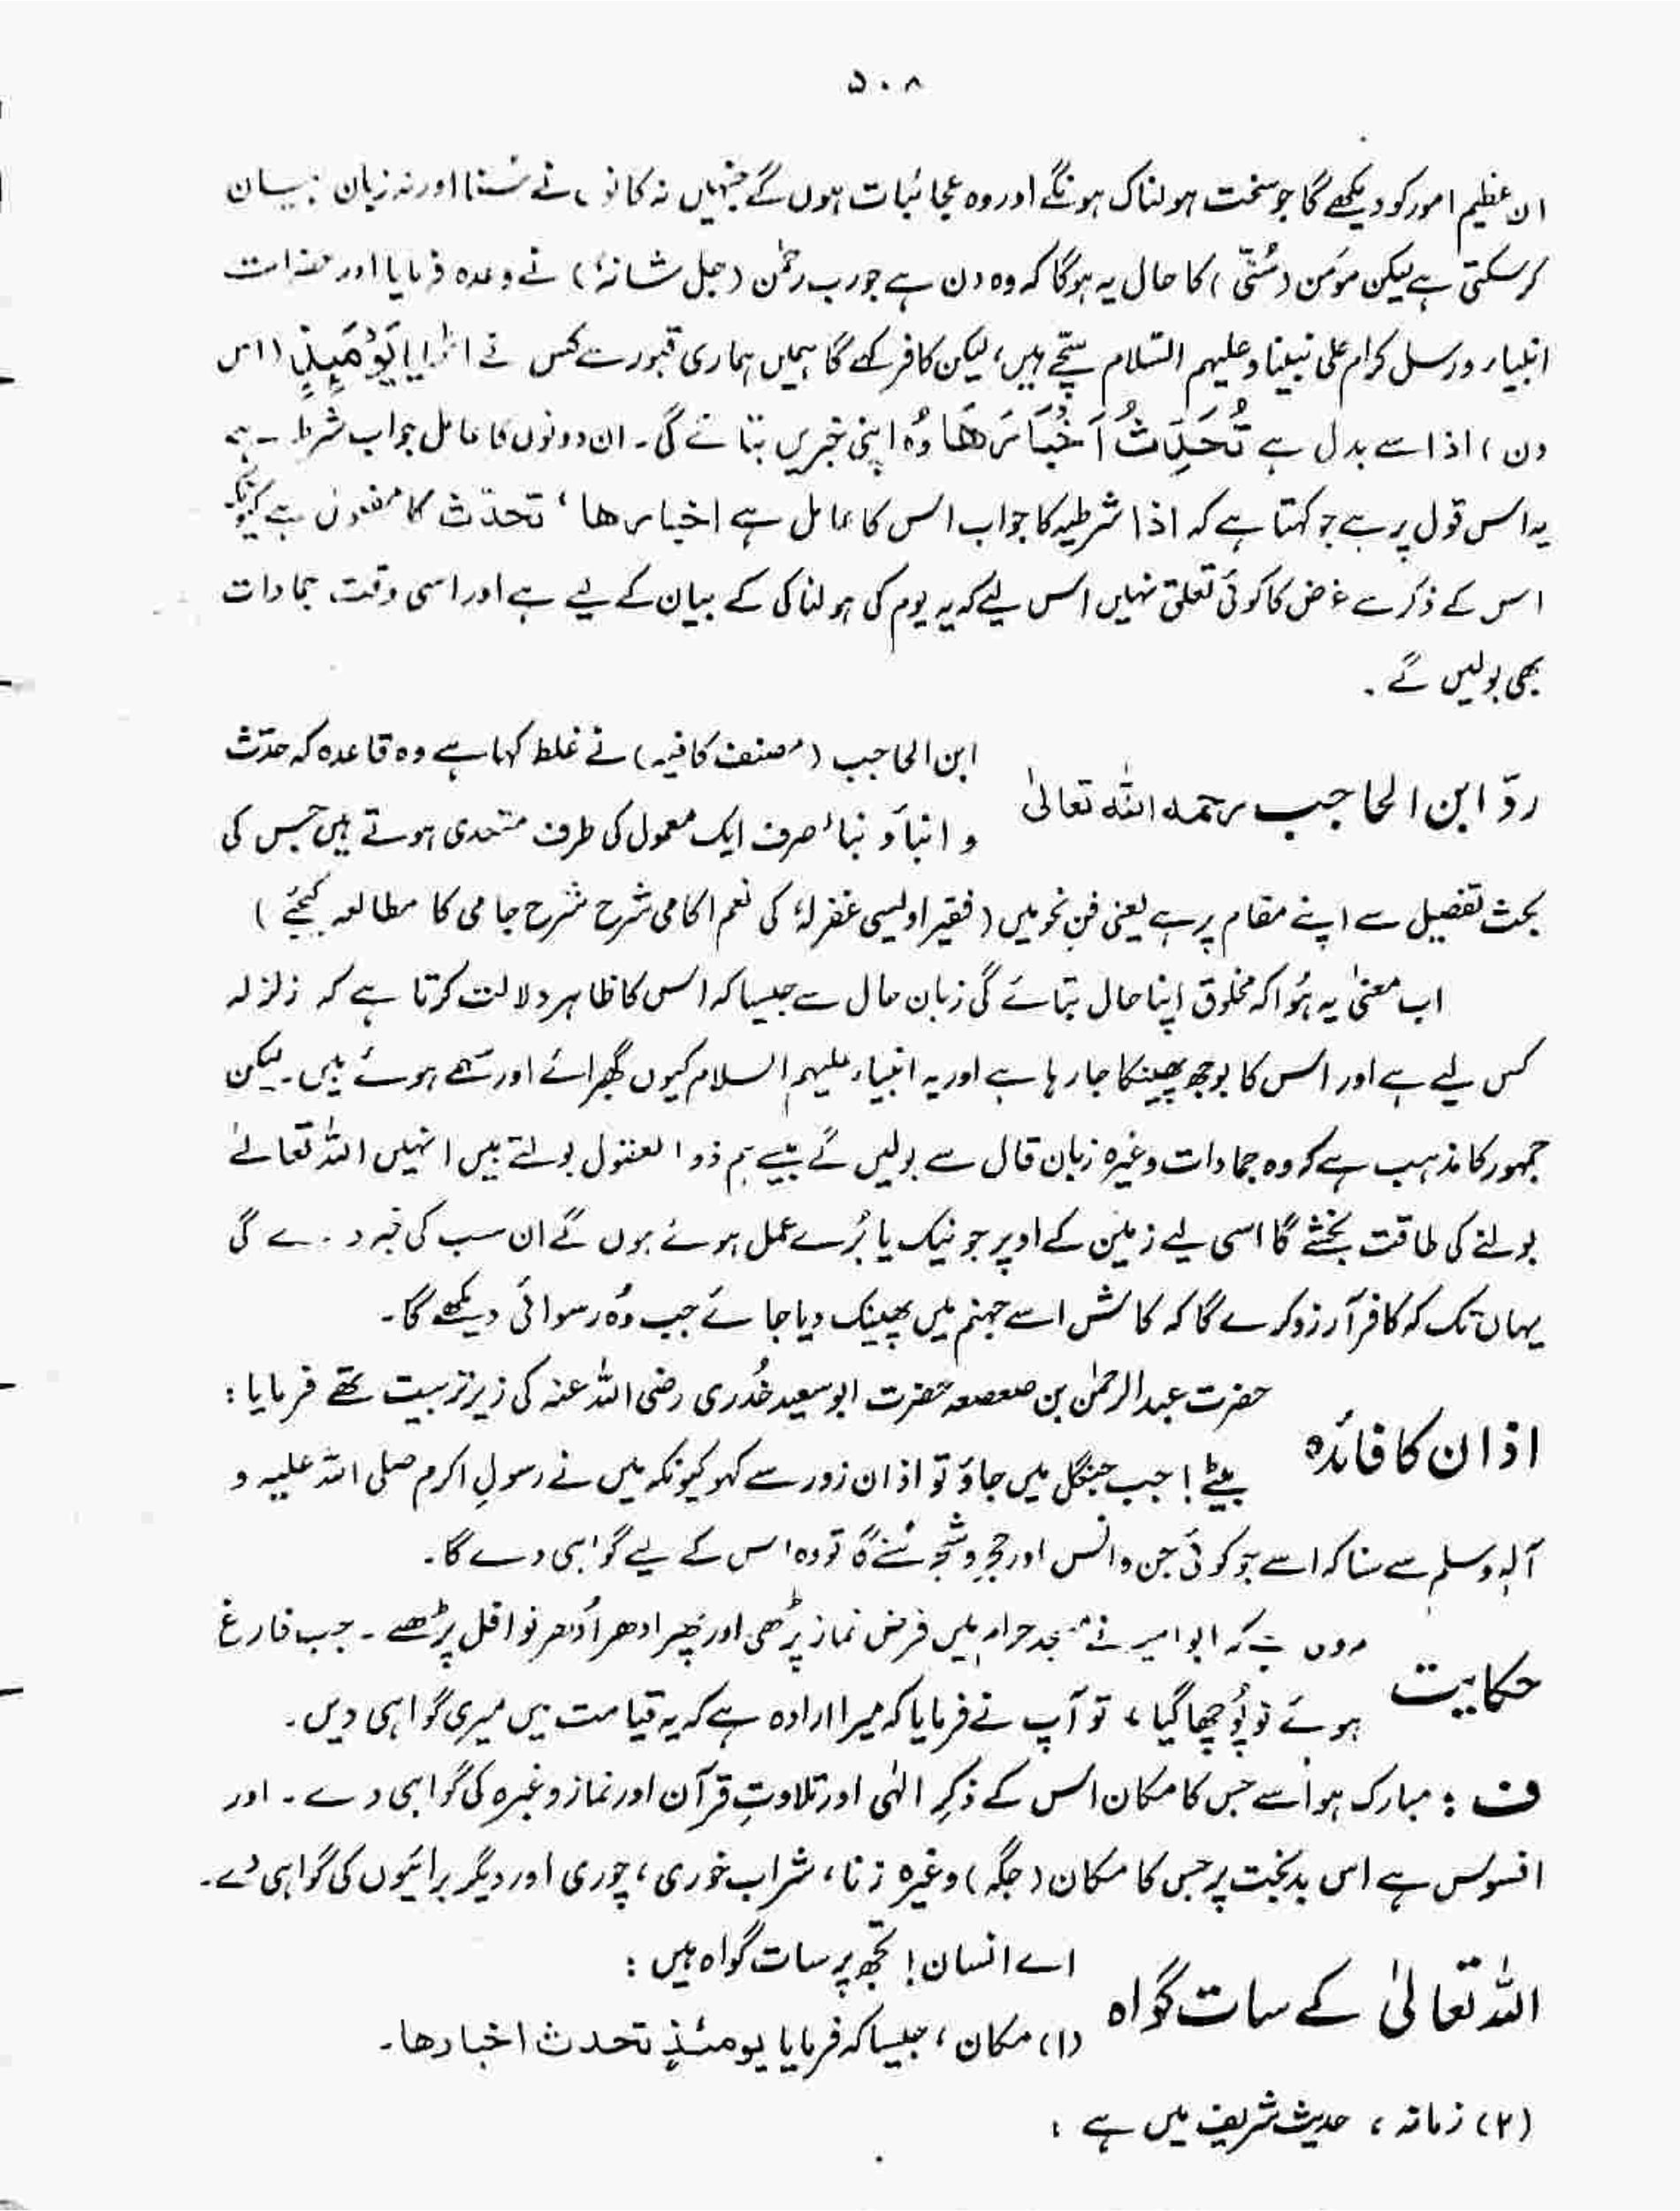 ۵۰۸
ان عظیم امور کو دیکھے گا جو سخت ہولناک ہونگے اور وہ عجائبات ہوں گے جنہیں نہ کانوں نے سُنا اور نہ زبان بیان
کرسکتی ہے لیکن مومن (سُنّی) کا حال یہ ہوگا کہ وہ دن ہے جو رب رحمٰن (جل شانہٗ) نے وعدہ فرمایا اور حضرات
انبیاء و رسل کرام علی نبینا وعلیہم السّلام سچّے ہیں، لیکن کافر کہے گا ہمیں ہماری قبور سے کس نے اٹھایا یَوْمَىِٕذٍ (اس
دن) اذا سے بدل ہے تُحَدِّثُ اَخْبَارَهَا وُہ اپنی خبریں بتائے گی۔ ان دونوں کا عامل جواب شرط ہے
یہ اس قول پر ہے جو کہتا ہے کہ اذا شرطیہ کا جواب اس کا عامل ہے اخبارها، تحدّث کا مفعول ہے کیونکہ
اس کے ذکر سے غرض کا کوئی تعلق نہیں اس لیے کہ یہ یوم کی ہولناکی کے بیان کے لیے ہے اور اسی وقت جمادات
بھی بولیں گے۔
ردّ ابن الحاجب رحمہ اللہ تعالیٰ
ابن الحاجب (مصنف کافیہ) نے غلط کہا ہے وہ قاعدہ کہ حدّث
و انبأ و نبأ صرف ایک معمول کی طرف متعدی ہوتے ہیں جس کی
بحث تفصیل سے اپنے مقام پر ہے یعنی فنِ نحو میں (فقیر اویسی غفرلہٗ کی نعم الکامی شرح شرح جامی کا مطالعہ کیجئے)
اب معنیٰ یہ ہُوا کہ مخلوق اپنا حال بتائے گی زبان حال سے جیسا کہ اس کا ظاہر دلالت کرتا ہے کہ زلزلہ
کس لیے ہے اور اس کا بوجھ پھینکا جارہا ہے اور یہ انبیاء علیہم السلام کیوں گھبرائے اور سہمے ہوئے ہیں۔ لیکن
جمہور کا مذہب ہے کہ وہ جمادات وغیرہ زبان قال سے بولیں گے جیسے ہم ذوالعقول بولتے ہیں انہیں اللہ تعالےٰ
بولنے کی طاقت بخشے گا اسی لیے زمین کے اوپر جو نیک یا بُرے عمل ہوئے ہوں گے ان سب کی خبر دے گی
یہاں تک کہ کافر آرزو کرے گا کہ کاش اسے جہنم میں پھینک دیا جائے جب وُہ رسوائی دیکھے گا۔
اذان کا فائدہ
حضرت عبدالرحمٰن بن صعصعہ حضرت ابو سعید خُدری رضی اللہ عنہ کی زیر تربیت تھے فرمایا:
بیٹے! جب جنگل میں جاؤ تو اذان زور سے کہو کیونکہ میں نے رسولِ اکرم صلی اللہ علیہ و
آلہٖ وسلم سے سنا کہ اسے جو کوئی جن و انس اور حجر و شجر سُنے گا تو وہ اس کے لیے گواہی دے گا۔
حکایت
مروی ہے کہ ابو امیہ نے مسجد حرام میں فرض نماز پڑھی اور پھر ادھر اُدھر نوافل پڑھے۔ جب فارغ
ہوئے تو پُوچھا گیا، تو آپ نے فرمایا کہ میرا ارادہ ہے کہ یہ قیامت میں میری گواہی دیں۔
ف : مبارک ہو اُسے جس کا مکان اس کے ذکرِ الٰہی اور تلاوتِ قرآن اور نماز وغیرہ کی گواہی دے۔ اور
افسوس ہے اس بدبخت پر جس کا مکان (جگہ) وغیرہ زنا، شراب خوری، چوری اور دیگر برائیوں کی گواہی دے۔
اللہ تعالیٰ کے سات گواہ
اے انسان! تجھ پر سات گواہ ہیں :
(۱) مکان، جیسا کہ فرمایا یومئذٍ تحدث اخبارھا۔
(۲) زمانہ، حدیث شریف میں ہے :